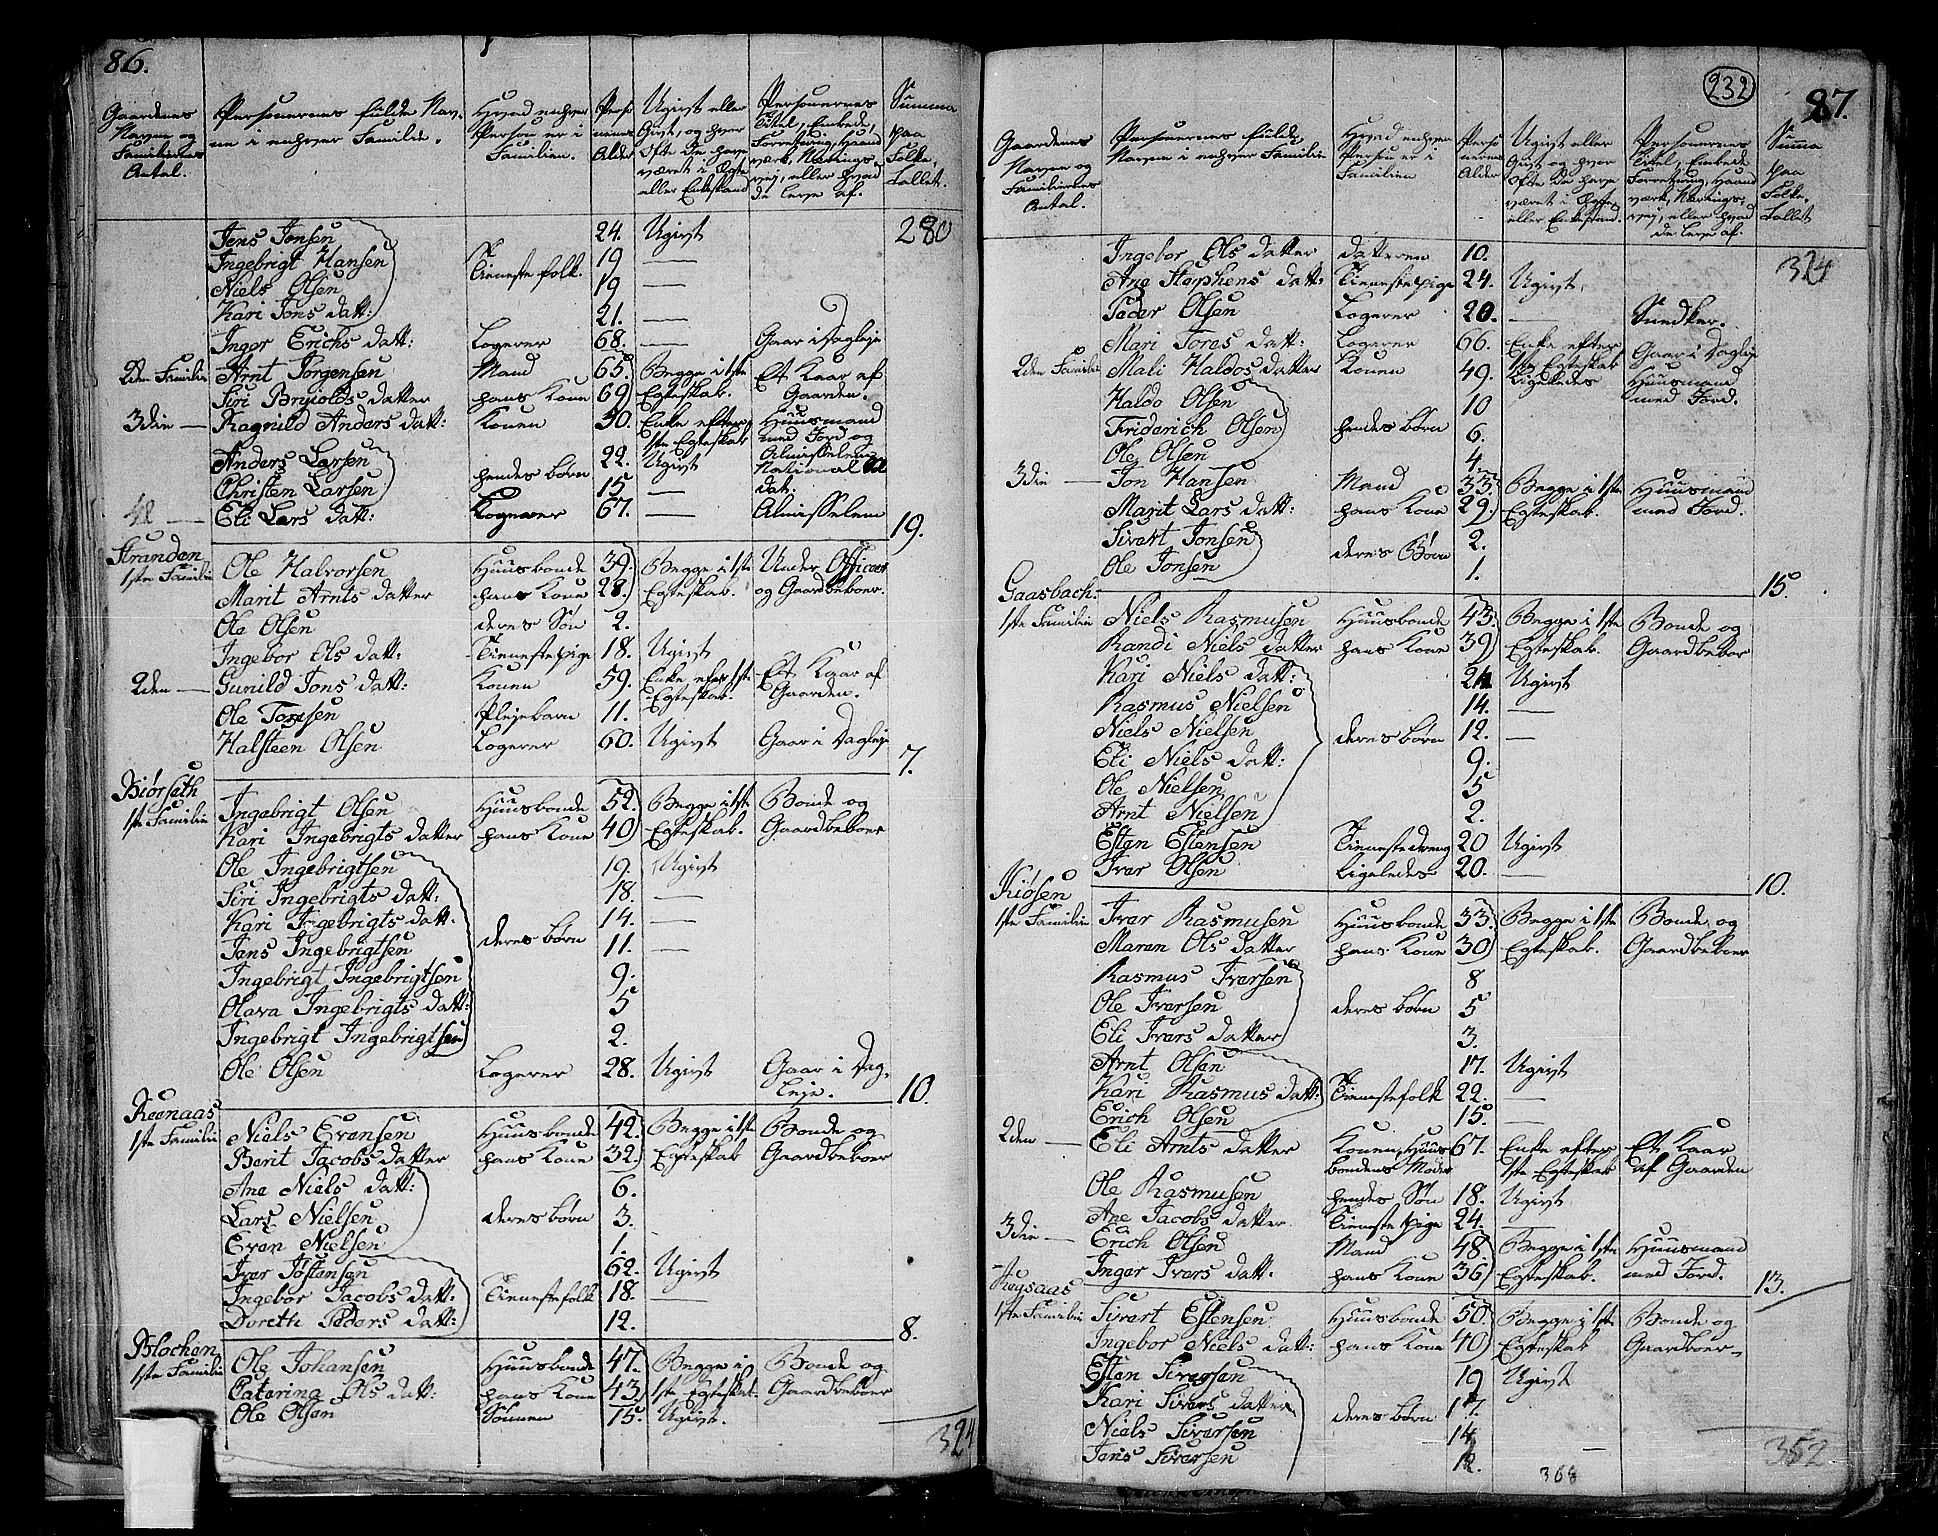 86.
Gaardenes Navne og Familiernes Antal.
Personernes fulde Navne i enhver Familie.
Hvad enhver Person er i Familien.
Personernes Alder
Ugivt eller Givt, og hvor Ofte De have været i Ægte eller Enkestand
Personernes Titel, Embede, Forretning, Haandværk, Næringsvej, eller hvad De leve af.
Summa paa Folketallet.
Jens Jensen 24. Ugivt 280
Ingebrigt Hansen Tieneste folk. 19 —
Niels Olsen 19 —
Kari Jons datt: 21. —
Inger Erichs datt: Logerer 68. — Gaar i Dagleje
2den Familie Arnt Jørgensen Mand 65 Begge i 1ste Et Kaar af
Siri Brynjolds datter hans Kone 69 Egteskab. Gaarden.
3die — Ragnild Anders datt: Konen 50. Enke efter 1ste Egteskab Huusmand med Jord og Almisselem
Anders Larsen hendes børn 22. Ugivt National Soldat.
Christen Larsen 15 —
4de — Eli Lars datt: Logerer 67. — Almisselem 19.
Strunden
1ste Familie Ole Halvorsen Huusbonde 39. Begge i 1ste Under Officeer
Marit Arnts datter hans Kone 28. Egteskab. og Gaardbeboer.
Ole Olsen deres Søn 2.
Ingebor Ols datt: Tienestepige 18. Ugivt
2den — Gunild Jons datt: Konen 59. Enke efter 1ste Egteskab. Et Kaar af Gaarden.
Ole Toresen Plejebarn 11.
Halsteen Olsen Logerer 60. Ugivt Gaar i Dagleje 7.
Biørseth
1ste Familie Ingebrigt Olsen Huusbonde 52. Begge i 1ste Bonde og
Kari Ingebrigts datter hans Kone 40 Egteskab. Gaardbeboer
Ole Ingebrigtsen 19. Ugivt
Siri Ingebrigts datt: 18. —
Kari Ingebrigts datt. deres børn 14. —
Jens Ingebrigtsen 11. —
Ingebrigt Ingebrigtsen 9.
Olava Ingebrigts datt: 5
Ingebrigt Ingebrigtsen 2.
Ole Olsen Logerer 28. Ugivt Gaar i Dagleje. 10.
Reenaas
1ste Familie Niels Evensen Huusbonde 42. Begge i 1ste Bonde og
Berit Jacobs datter hans Kone 32. Egteskab Gaardbeboer
Ane Niels datt: 6.
Lars Nielsen deres børn 3.
Even Nielsen 1.
Iver Jøstensen 62. Ugivt
Ingebor Jacobs datt: Tienestefolk 18. —
Doreth Peders datt: 12. 8.
Blochen
1ste Familie Ole Johansen Huusbonde 47. Begge i Bonde og
Caterina Ols datt: hans Kone 43. 1ste Egteskab. Gaardbeboer
Ole Olsen Sønnen 15. Ugivt. 324
232
87.
Gaardenes Navne og Familiernes Antal.
Personernes fulde Navne i enhver Familie
Hvad enhver Person er i Familien
Personernes Alder
Ugivt eller Givt og hvor Ofte De have været i Egte eller Enkestand.
Personernes Titel, Embede Forretning, Haandværk, Næringsvej, eller hvad De leve af.
Summa paa Folketallet
Ingebor Ols datter datteren 10. 324
Ane Staphens datt: Tienestepige 24. Ugivt.
Peder Olsen Logerer 20. — Snedker.
Mari Tores datt: Logerer 66. Enke efter 1ste Egteskab Gaar i Dagleje
2den Familie Mali Haldos datter Konen 49. Ligeledes Huusmand med Jord.
Haldo Olsen 10
Friderich Olsen hendes børn 6.
Ole Olsen 4.
3die — Jon Hansen Mand 33. Begge i 1ste Huusmand
Marit Lars datt: hans Kone 29. Egteskab. med Jord.
Sivert Jonsen deres Børn 2.
Ole Jonsen 1. 15.
Gaasbach:
1ste Familie Niels Rasmusen Huusbonde 43. Begge i 1ste Bonde og
Randi Niels datter hans Kone 39 Egteskab. Gaardbeboer
Kari Niels datt: 21 Ugivt
Rasmus Nielsen 14. —
Niels Nielsen deres børn 12. —
Eli Niels datt: 9.
Ole Nielsen 5
Arnt Nielsen 2.
Esten Estensen Tienestedreng 20 Ugivt
Iver Olsen Ligeledes 20. — 10.
Kiøsen
1ste Familie Iver Rasmusen Huusbonde 33. Begge i 1ste Bonde og
Maren Ols datter hans Kone 30 Egteskab. Gaardbeboer
Rasmus Iversen 8
Ole Iversen deres børn 5
Eli Ivers datter 3.
Arnt Olsen 17. Ugivt
Kari Rasmus datt: Tienestefolk 22. —
Erich Olsen 15. —
2den — Eli Arnts datter Konen, Huusbondens Moder 67. Enke efter 1ste Egteskab Et Kaar af Gaarden
Ole Rasmusen hendes Søn 18. Ugivt
Ane Jacobs datter Tieneste pige 24. —
3die — Erich Olsen Mand 48. Begge i 1ste Huusmand
Inger Ivers datt: hans Kone 36 Egteskab. med Jord. 13.
Rygsaas
1ste Familie Sivert Estensen Huusbonde 50. Begge i 1ste Bonde og
Ingebor Niels datt: hans Kone 40 Egteskab Gaardboer—
Esten Siversen 19 Ugivt
Kari Sivers datter deres børn 17.
Niels Siversen 14
Jens Siversen 12. 352
368